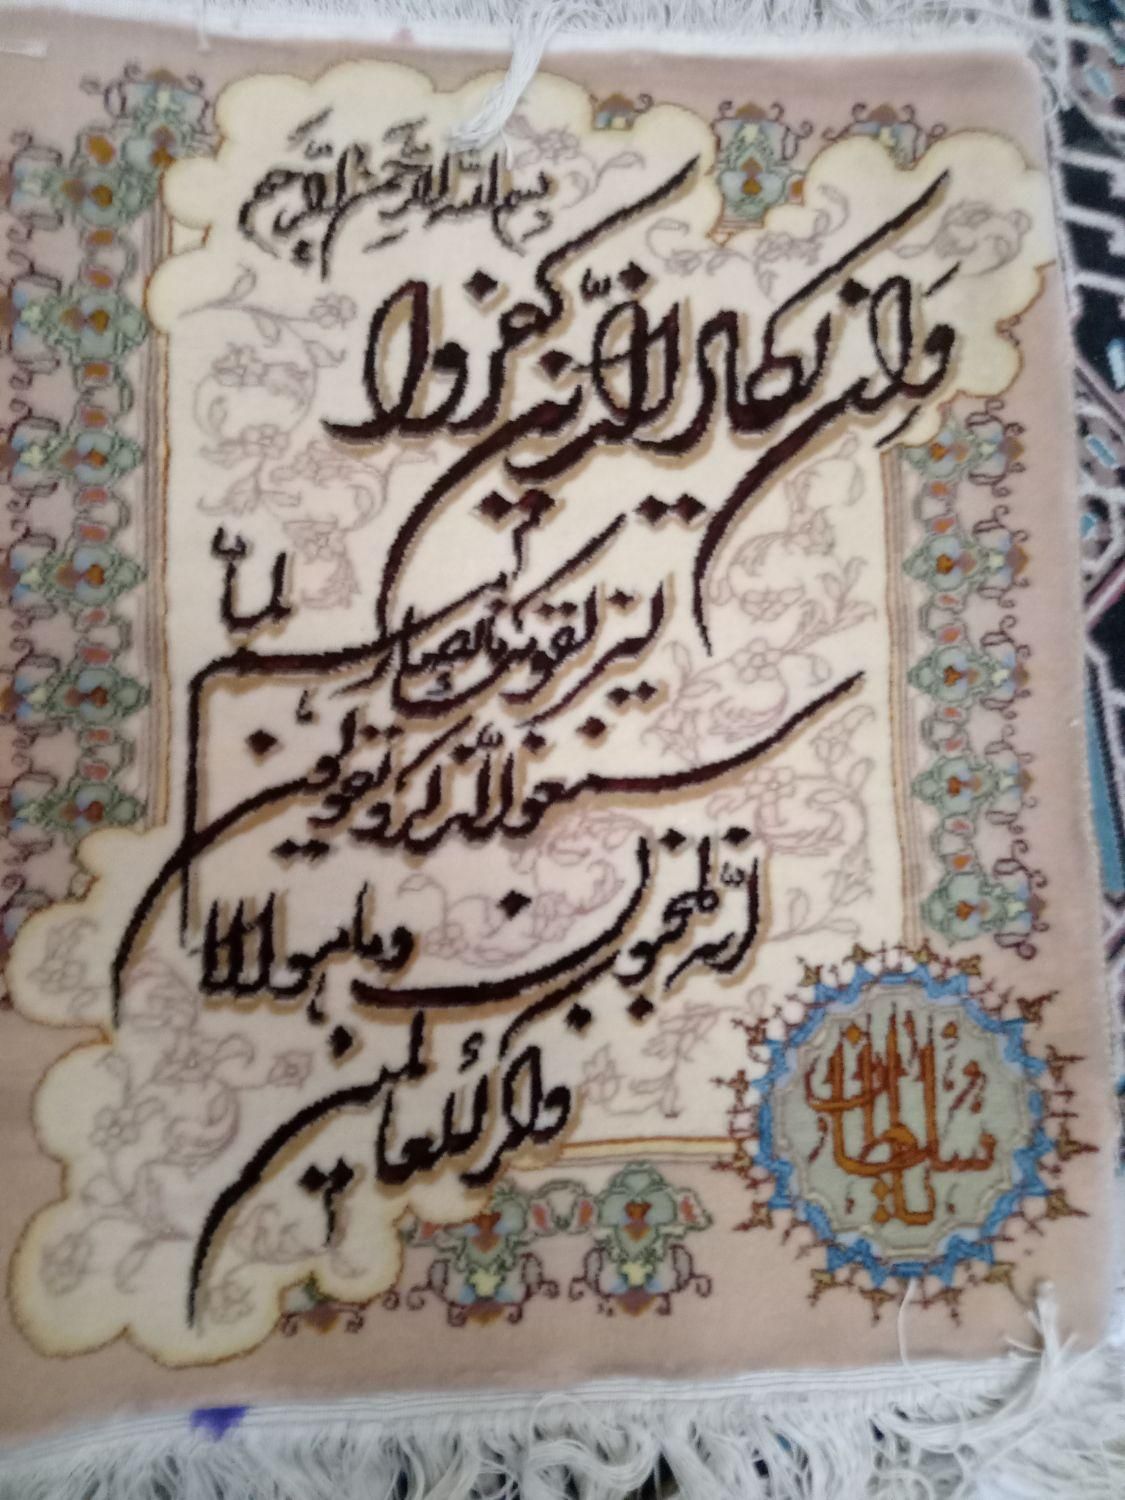 بسم الله الرحمن الرحیم
وَاِن یکاد الّذین کفروا
لیزلقونک بابصارهم لمّا
سمعوا الذّکر و یقولون
انّه لمجنون و ما هو الّا
ذکر للعالمین
سلطان